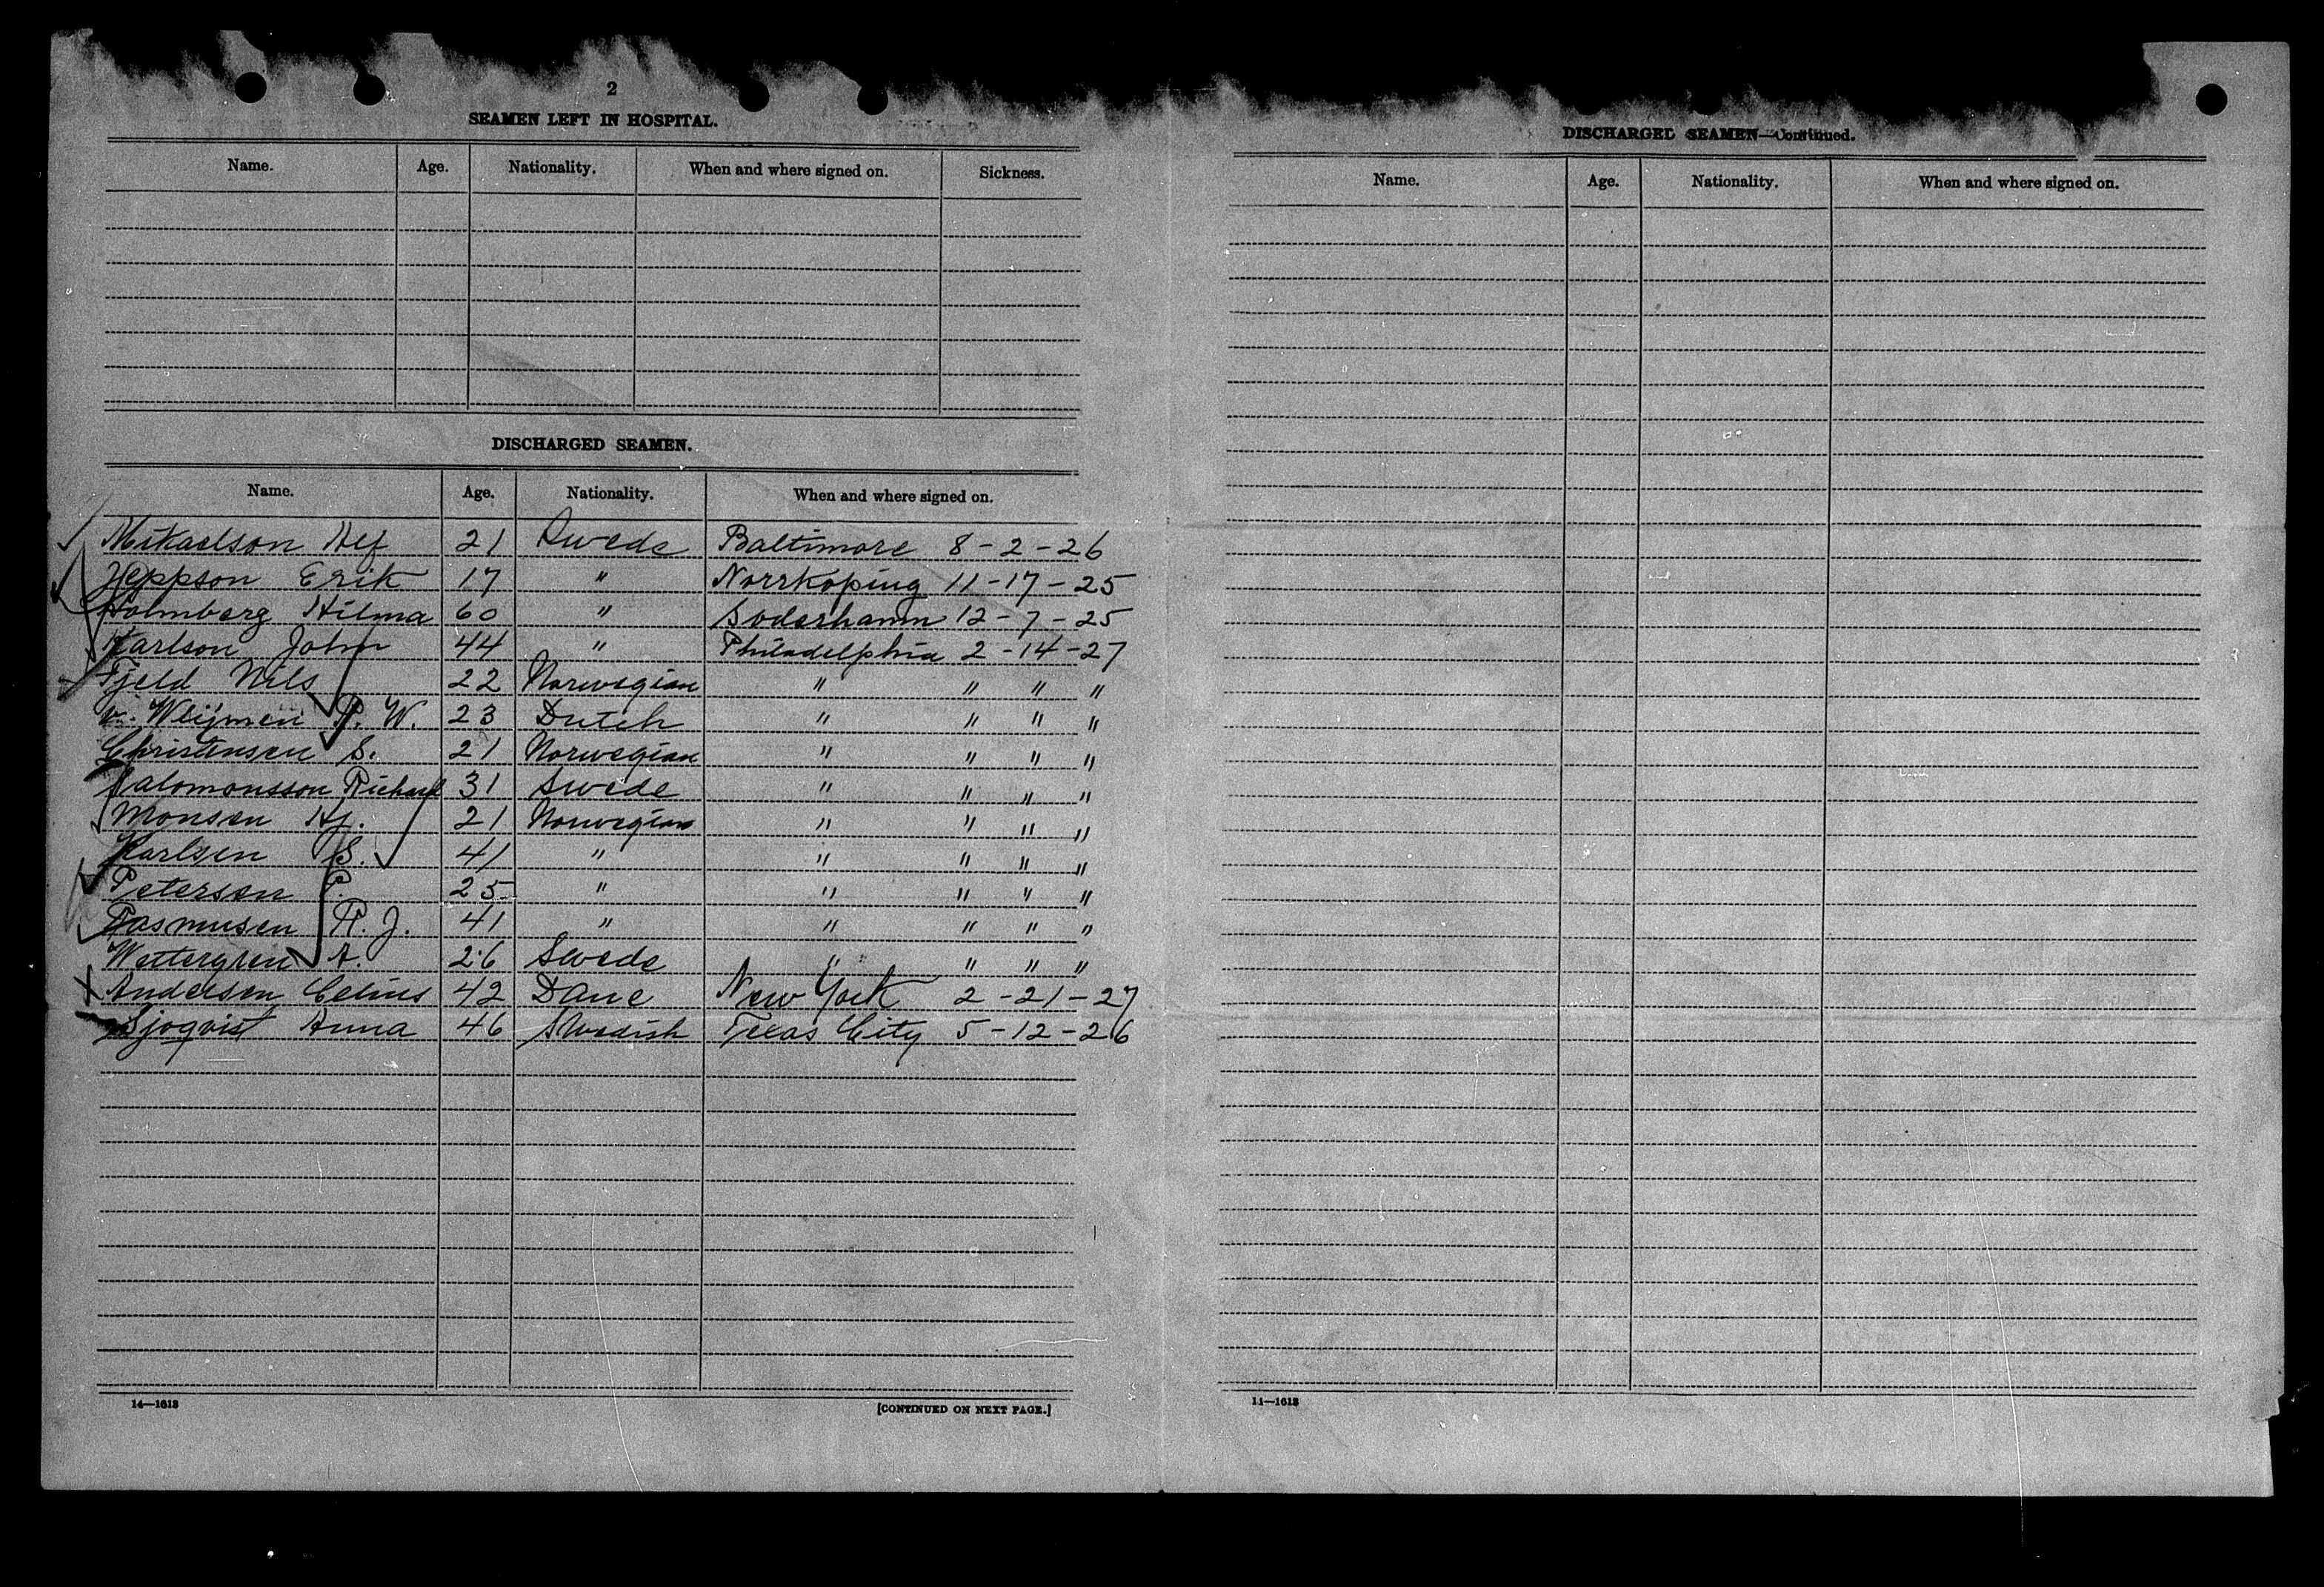 2
SEAMEN LEFT IN HOSPITAL.
Name. Age. Nationality. When and where signed on. Sickness.
DISCHARGED SEAMEN.
Name. Age. Nationality. When and where signed on.
Mikaelson 21 Swede Baltimore 8-2-26
Jeppson Erik 17 " Norrköping 11-17-25
Holmberg Hilma 60 " Soderhamn 12-7-25
Karlson John 44 " Philadelphia 2-14-27
Fjeld Nils 22 Norwegian " " " "
v. Weijmen P. W. 23 Dutch " " " "
Christensen S. 21 Norwegian " " " "
Salomonsson Richard 31 Swede " " " "
Monsen Hj. 21 Norwegian " " " "
Karlsen S. 41 " " " " "
Petersen P. 25 " " " " "
Rasmusen R. J. 41 " " " " "
Wettergren A. 26 Swede " " " "
Andersen Celius 42 Dane New York 2-21-27
Sjoqvist Anna 46 Swedish Texas City 5-12-26
14—1613
[CONTINUED ON NEXT PAGE.]
DISCHARGED SEAMEN—Continued.
Name. Age. Nationality. When and where signed on.
11—1613